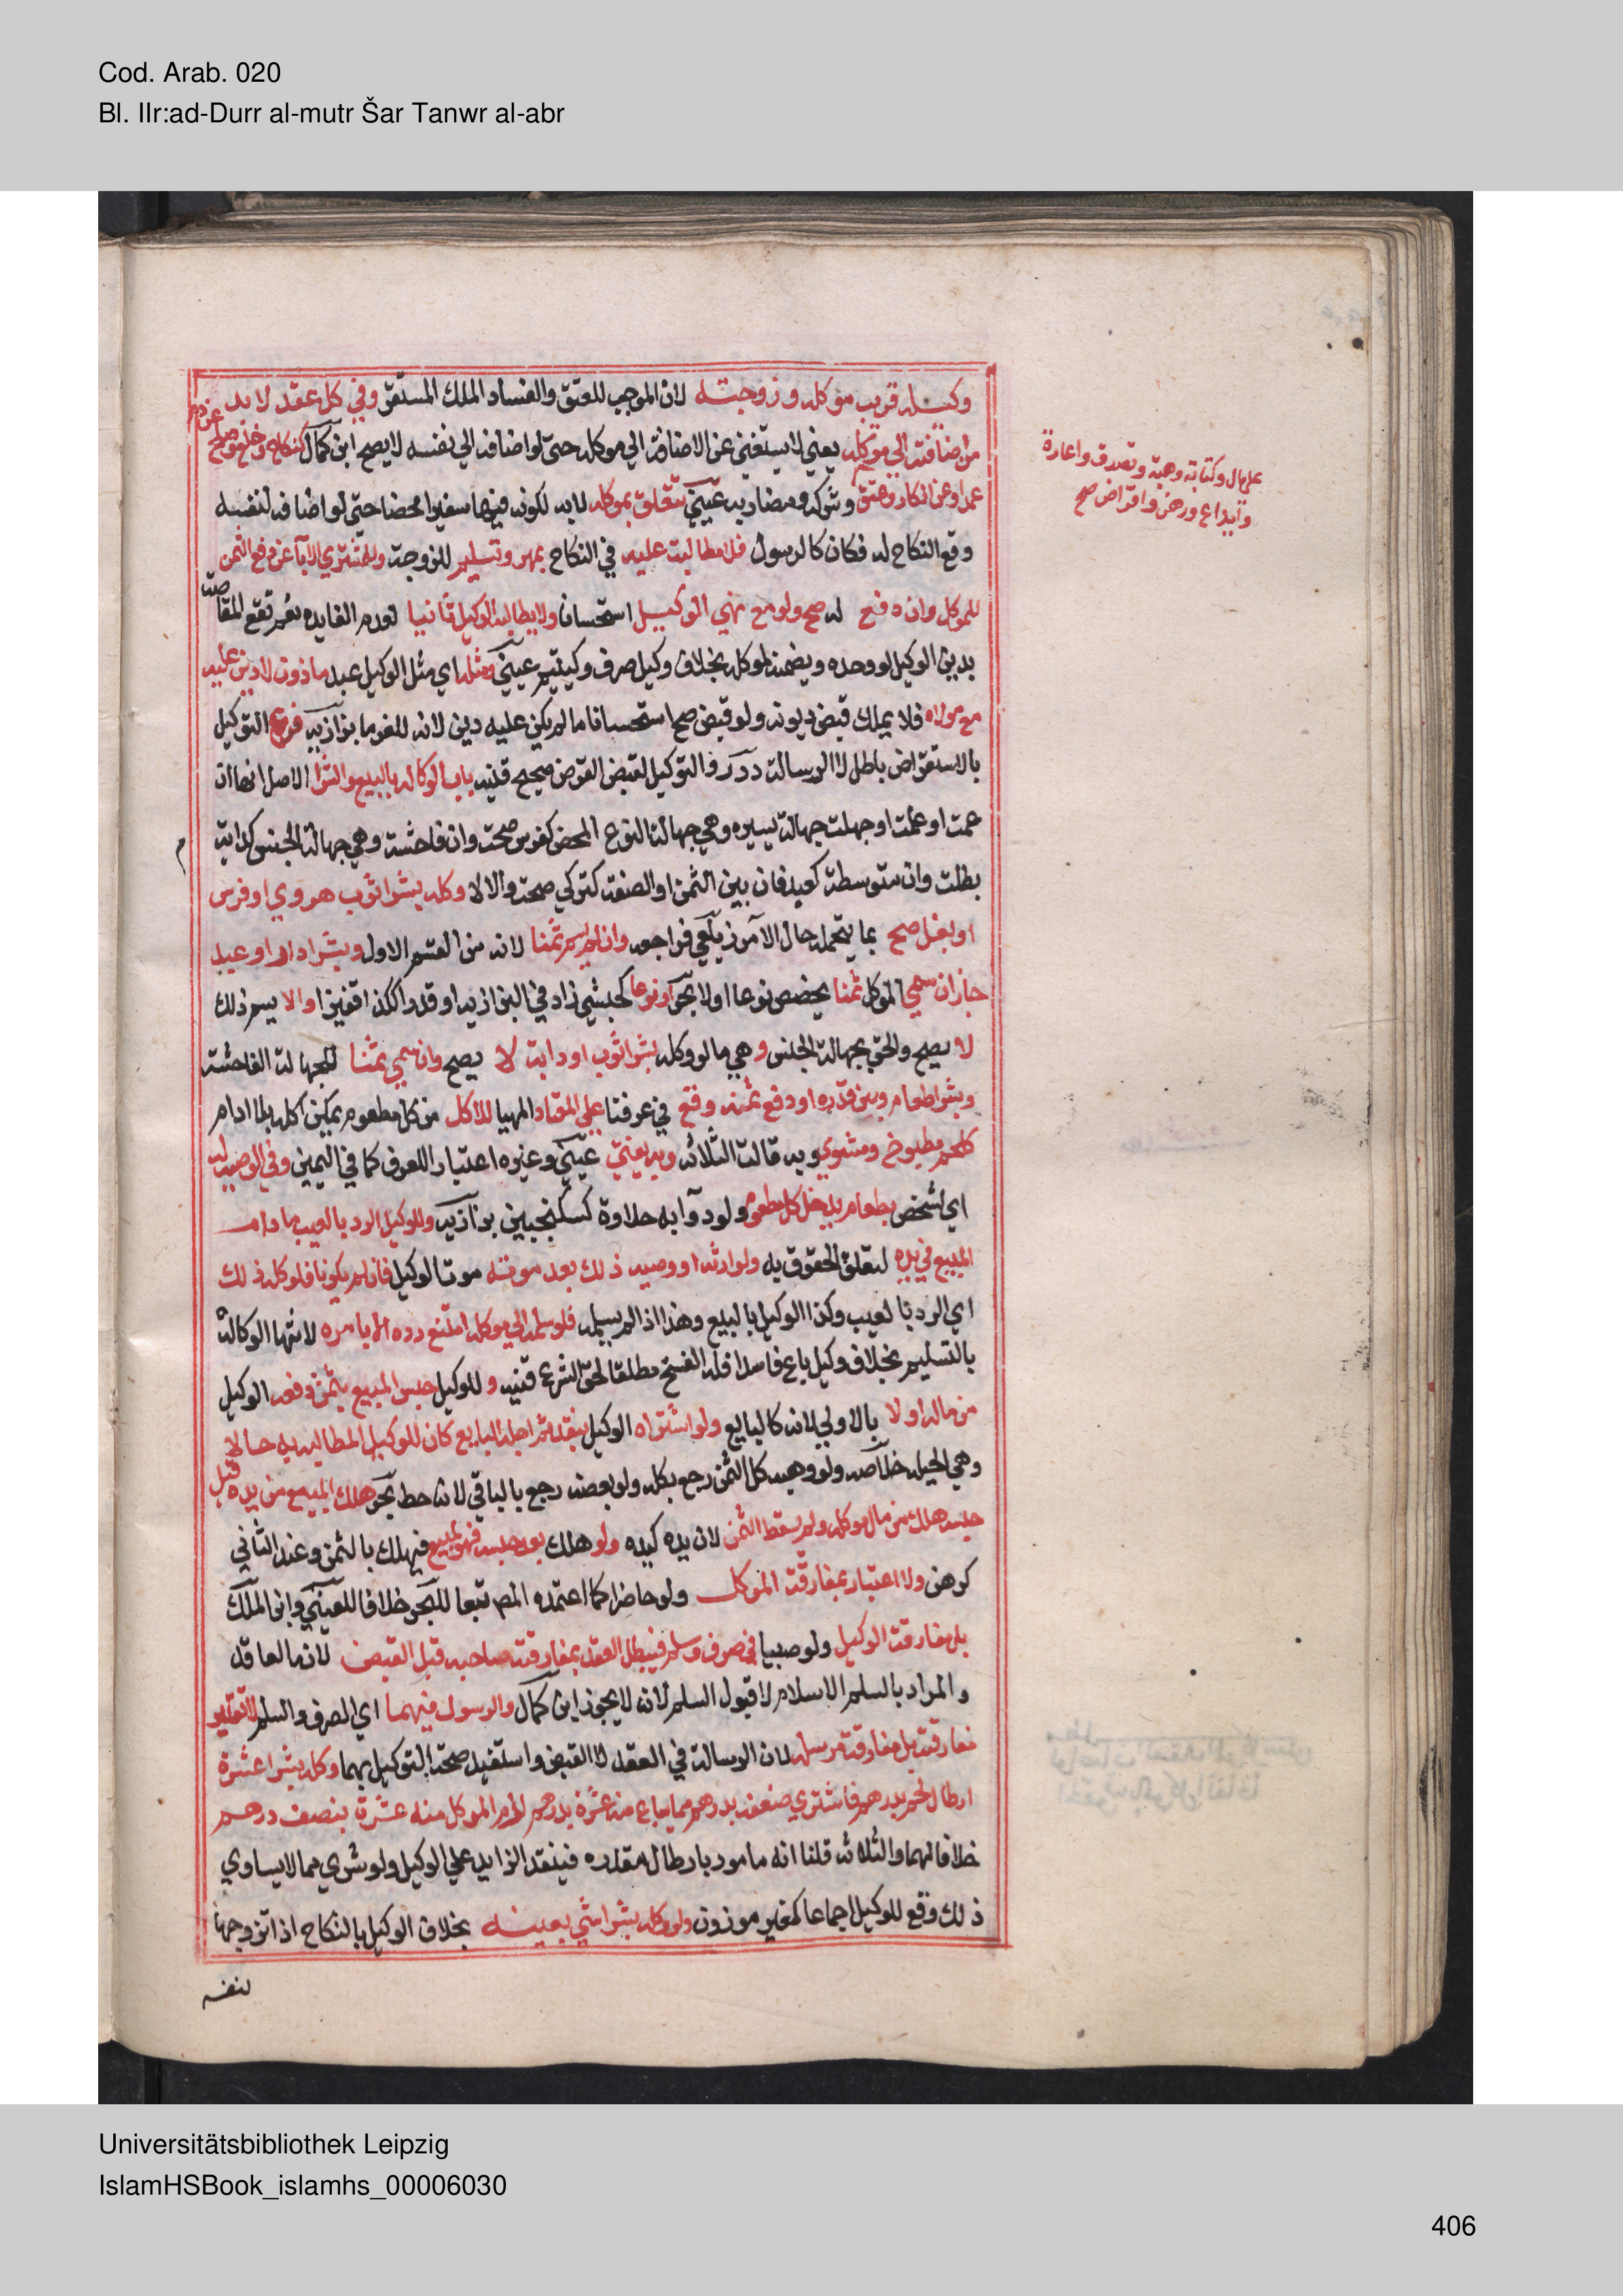 Cod. Arab. 020
Bl. IIr:ad-Durr al-mutr Šar Tanwr al-abr
وكيله قريب موكله وزوجته لان الموجب للعتق والفساد الملك المستقر وفي كل عقد لا بد
من اضافته الي موكله يعني لا يستغني عن الاضافة الي موكله حتي لو اضافه الي نفسه لا يصح ابن كمال كنكاح وخلع وصلح عن دم
عمد او عن انكار وعتق وشركة ومضاربه عيني تتعلق بموكله لا به لكونه فيها سفيرا محضا حتي لو اضافه لنفسه
علي مال وكتابة وهبة وتصدق واعارة
وايداع ورهن واقراض صح
وقع النكاح له فكان كالرسول فلا مطالبة عليه في النكاح بمهر وتسليم للزوجة وللمشتري الابآ عن دفع الثمن
للموكل وان دفع له صح ولو مع نهي الوكيل استحسانا ولا يطالبه الوكيل ثانيا لعدم الفايده نعم تقع المقاصة
بدين الوكيل لو وحده ويضمنه لموكله بخلاف وكيل صرف وكيتيم عيني ومثله اي مثل الوكيل عبد ماذون لا دين عليه
مع مولاه فلا يملك قبض ديونه ولو قبض صح استحسانا ما لم يكن عليه دين لانه للغرما بزازيه فرع التوكيل
بالاستقراض باطل لا الرسالة درر والتوكيل لقبض القرض صحيح قنيه باب الوكاله بالبيع والشرا الاصل انها ان
عمت او علمت او جهلت جهالة يسيره وهي جهالة النوع المحض كفرس صحت وان فاحشة وهي جهالة الجنس كدابة
بطلت وان متوسطة كعبد فان بين الثمن او الصفة كتركي صحت والا لا وكله بشرا ثوب هروي او فرس
او بغل صح بما يتحمله حال الآمر زيلعي فراجعه وان لم يسم ثمنا لانه من القسم الاول وبشرا دار او عبد
جاز ان سمي الموكل ثمنا يخصص نوعا اولا بحر او نوعا كحبشي زاد في البزازيه او قدرا ككذا قفيزا والا يسم ذلك
لا يصح والحق بجهالة الجنس وهي ما لو وكله بشرا ثوب او دابة لا يصح وان سمي ثمنا للجهالة الفاحشة
وبشرا طعام وبين قدره او دفع ثمنه وقع في عرفنا علي المعتاد المهيا للاكل من كل مطعوم يمكن اكله بلا ادام
كلحم مطبوخ ومشوي وبه قالت الثلاثه وبه يفتي عيني وغيره اعتبارا للعرف كما في اليمين وفي الوصيه له
اي لشخص بطعام يدخل كل مطعوم ولو دوآ به حلاوة كسكنجبين بزازيه وللوكيل الرد بالعيب ما دام
المبيع في يده لتعلق الحقوق به ولوارثه او وصيه ذلك بعد موته موت الوكيل فان لم يكونا فلموكله ذلك
اي الرد بالعيب وكذا الوكيل بالبيع وهذا اذا لم يسلمه فلو سلمه الي موكله امتنع رده الا بامره لانتها الوكالة
بالتسليم بخلاف وكيل باع فاسدا فله الفسخ مطلقا لحق الشرع قنيه وللوكيل حبس المبيع بثمن دفعه الوكيل
من ماله او لا بالاولي لانه كالبايع ولو اشتراه الوكيل بنقد ثم اجله البايع كان للوكيل المطالبه به حالا
وهي الحيله خلاصه ولو وهبه كل الثمن رجع بكله ولو بعضه رجع بالباقي لانه حط بحر هلك المبيع من يده قبل
حبسه هلك من مال موكله ولم يسقط الثمن لان يده كيده ولو هلك بعد حبسه فهو كمبيع فيهلك بالثمن وعند الثاني
كرهن ولا اعتبار بمفارقة الموكل ولو حاضرا كما اعتمده المص تبعا للبحر خلافا للعيني وابن الملك
بل مفارقة الوكيل ولو صبيا في صرف وسلم فيبطل العقد بمفارقة صاحبه قبل القبض لانه العاقد
والمراد بالسلم الاسلام لا قبول السلم لانه لا يجوز ابن كمال والرسول فيهما اي الصرف والسلم لا تعتبر
مفارقته بل مفارقة مرسله لان الرسالة في العقد لا القبض واستفيد صحة التوكيل بهما وكله بشرا عشرة
ارطال لحم بدرهم فاشتري ضعفه بدرهم مما يباع منه عشرة بدرهم لزم الموكل منه عشرة بنصف درهم
خلافا لهما والثلاثه قلنا انه مامور بارطال مقدره فينفذ الزايد علي الوكيل ولو شري مما لا يساوي
ذلك وقع للوكيل اجماعا كغير موزون ولو وكله بشرا شي بعينه بخلاف الوكيل بالنكاح اذا تزوجها
لنفسه
Universitätsbibliothek Leipzig
IslamHSBook_islamhs_00006030
406